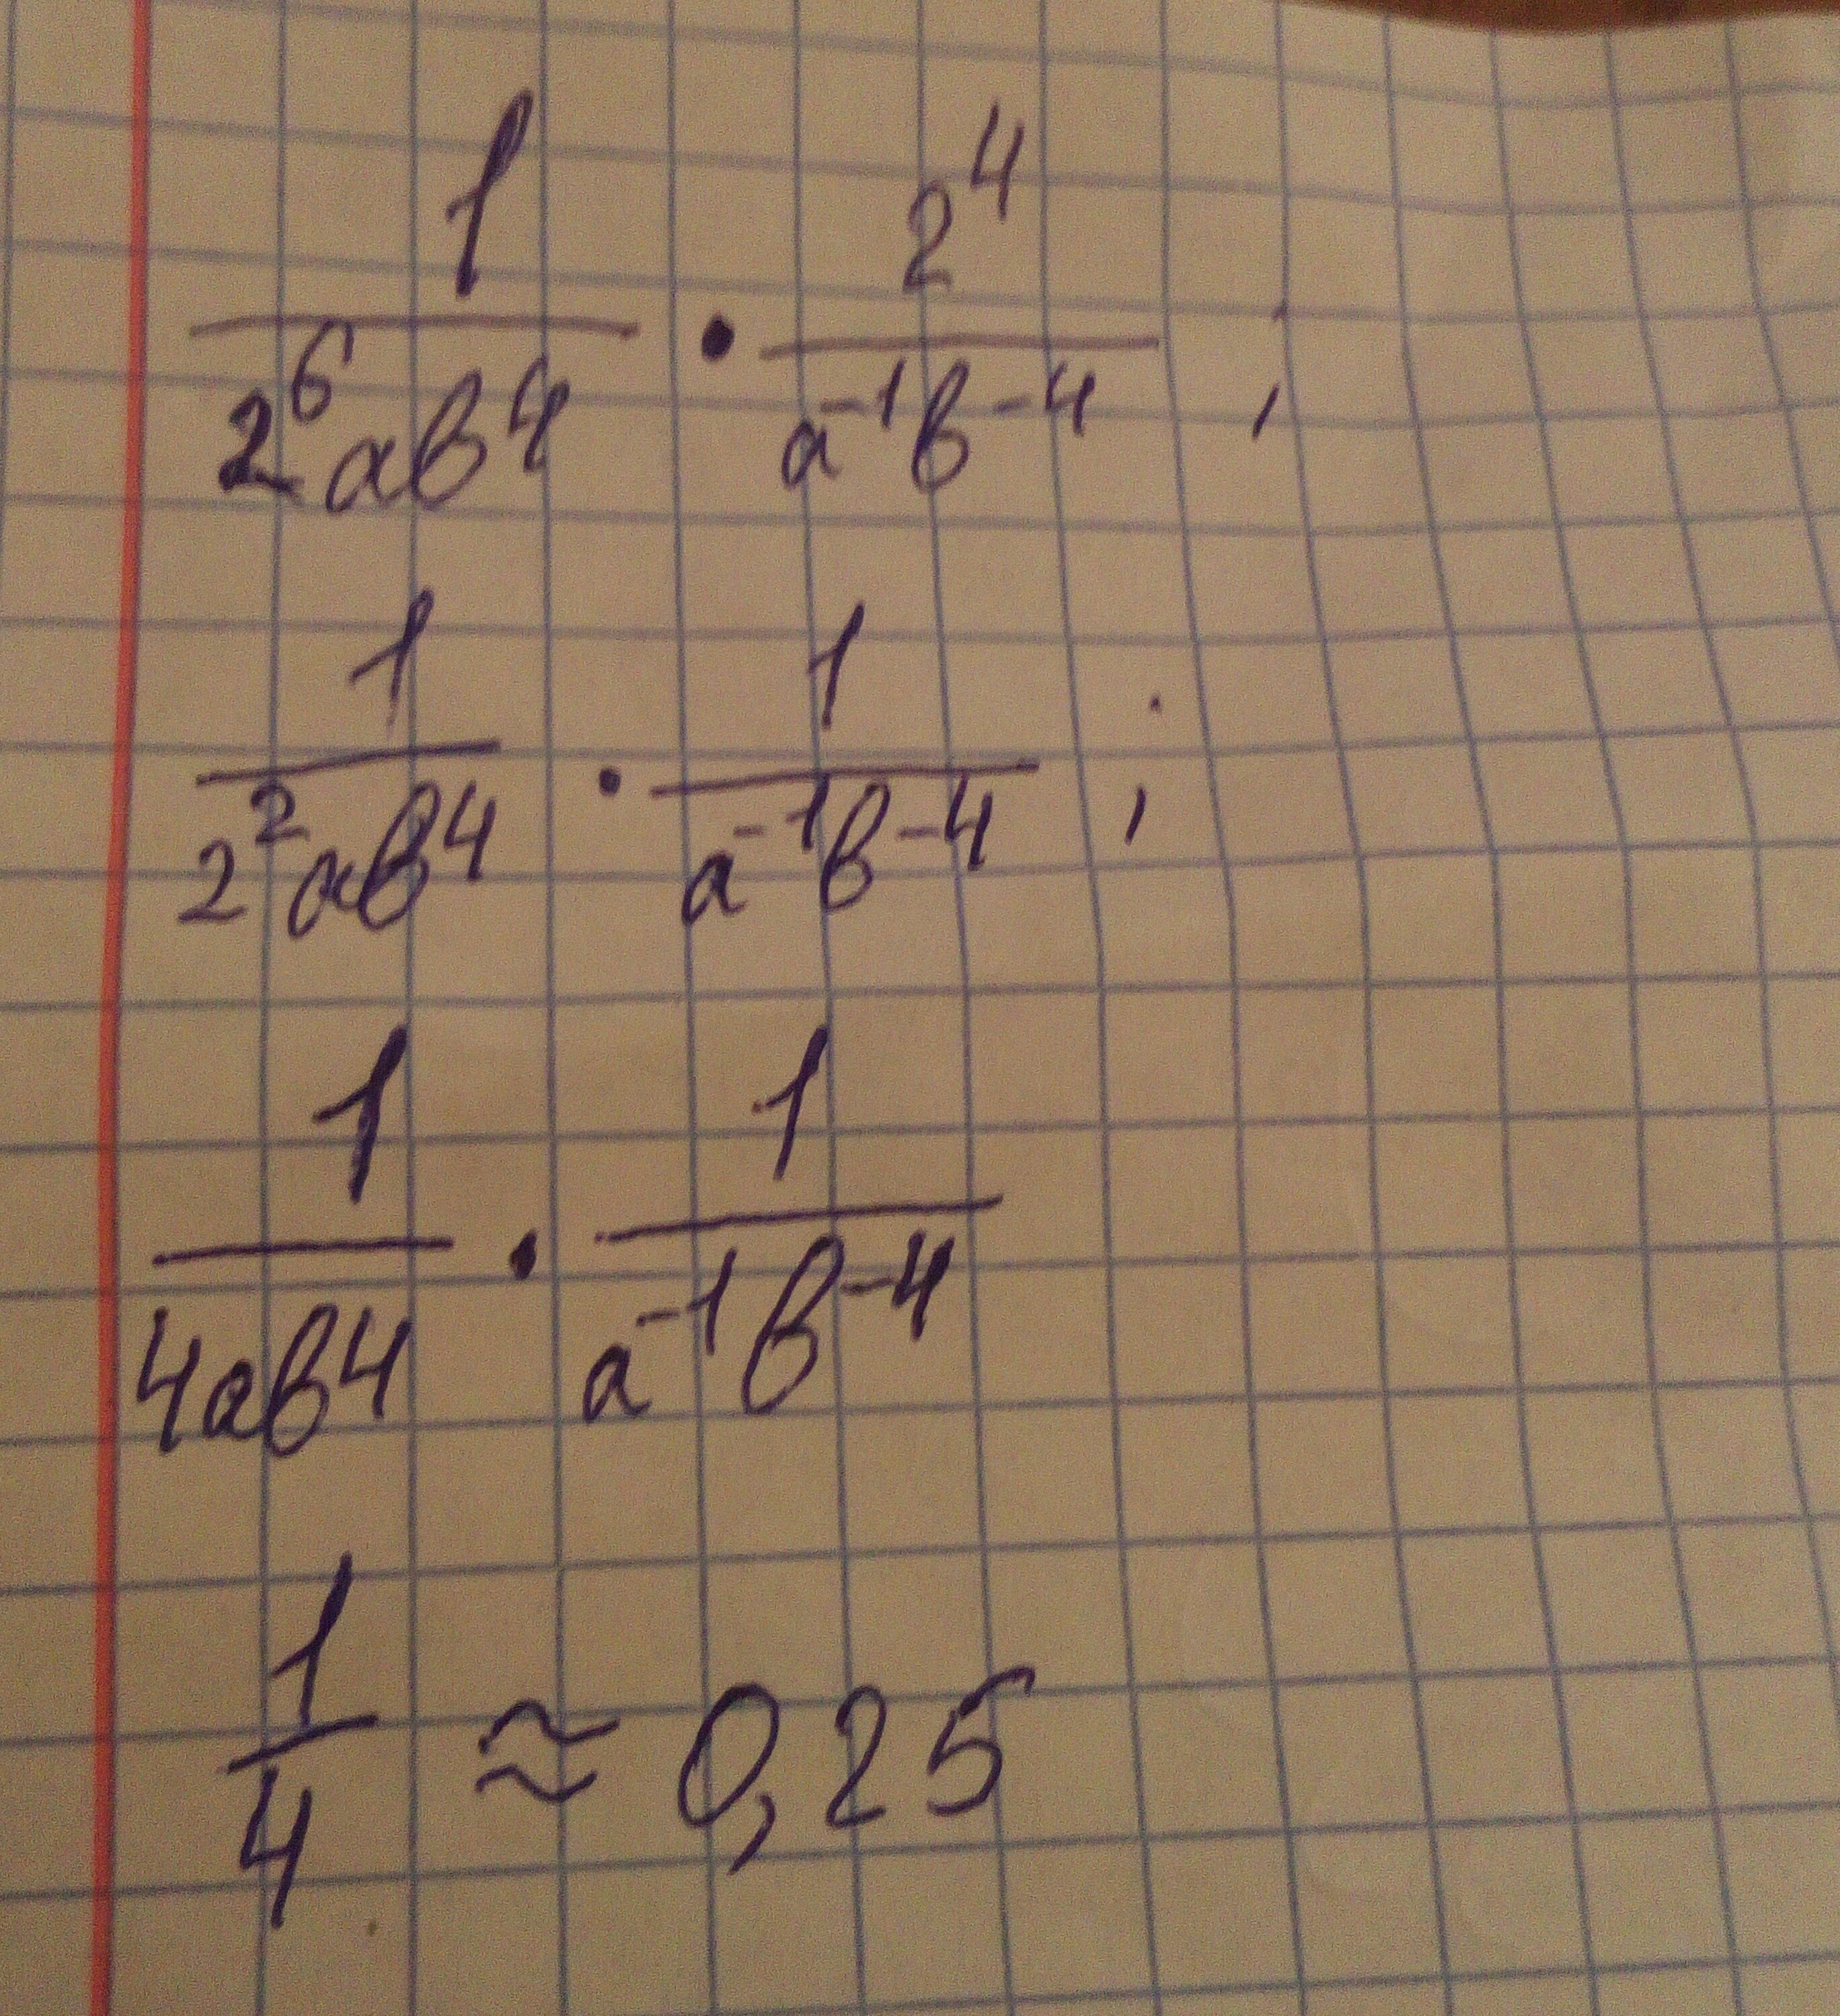 1/(2⁶ab⁴) · 2⁴/(a⁻¹b⁻⁴) ;
1/(2²ab⁴) · 1/(a⁻¹b⁻⁴) ;
1/(4ab⁴) · 1/(a⁻¹b⁻⁴)
1/4 ≈ 0,25